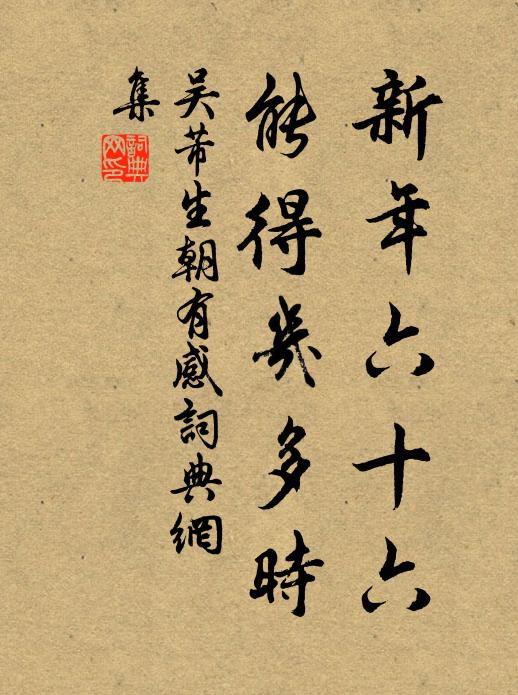 新年六十六
能得幾多時
吴芾生朝有感詞典網
集
詞典网印